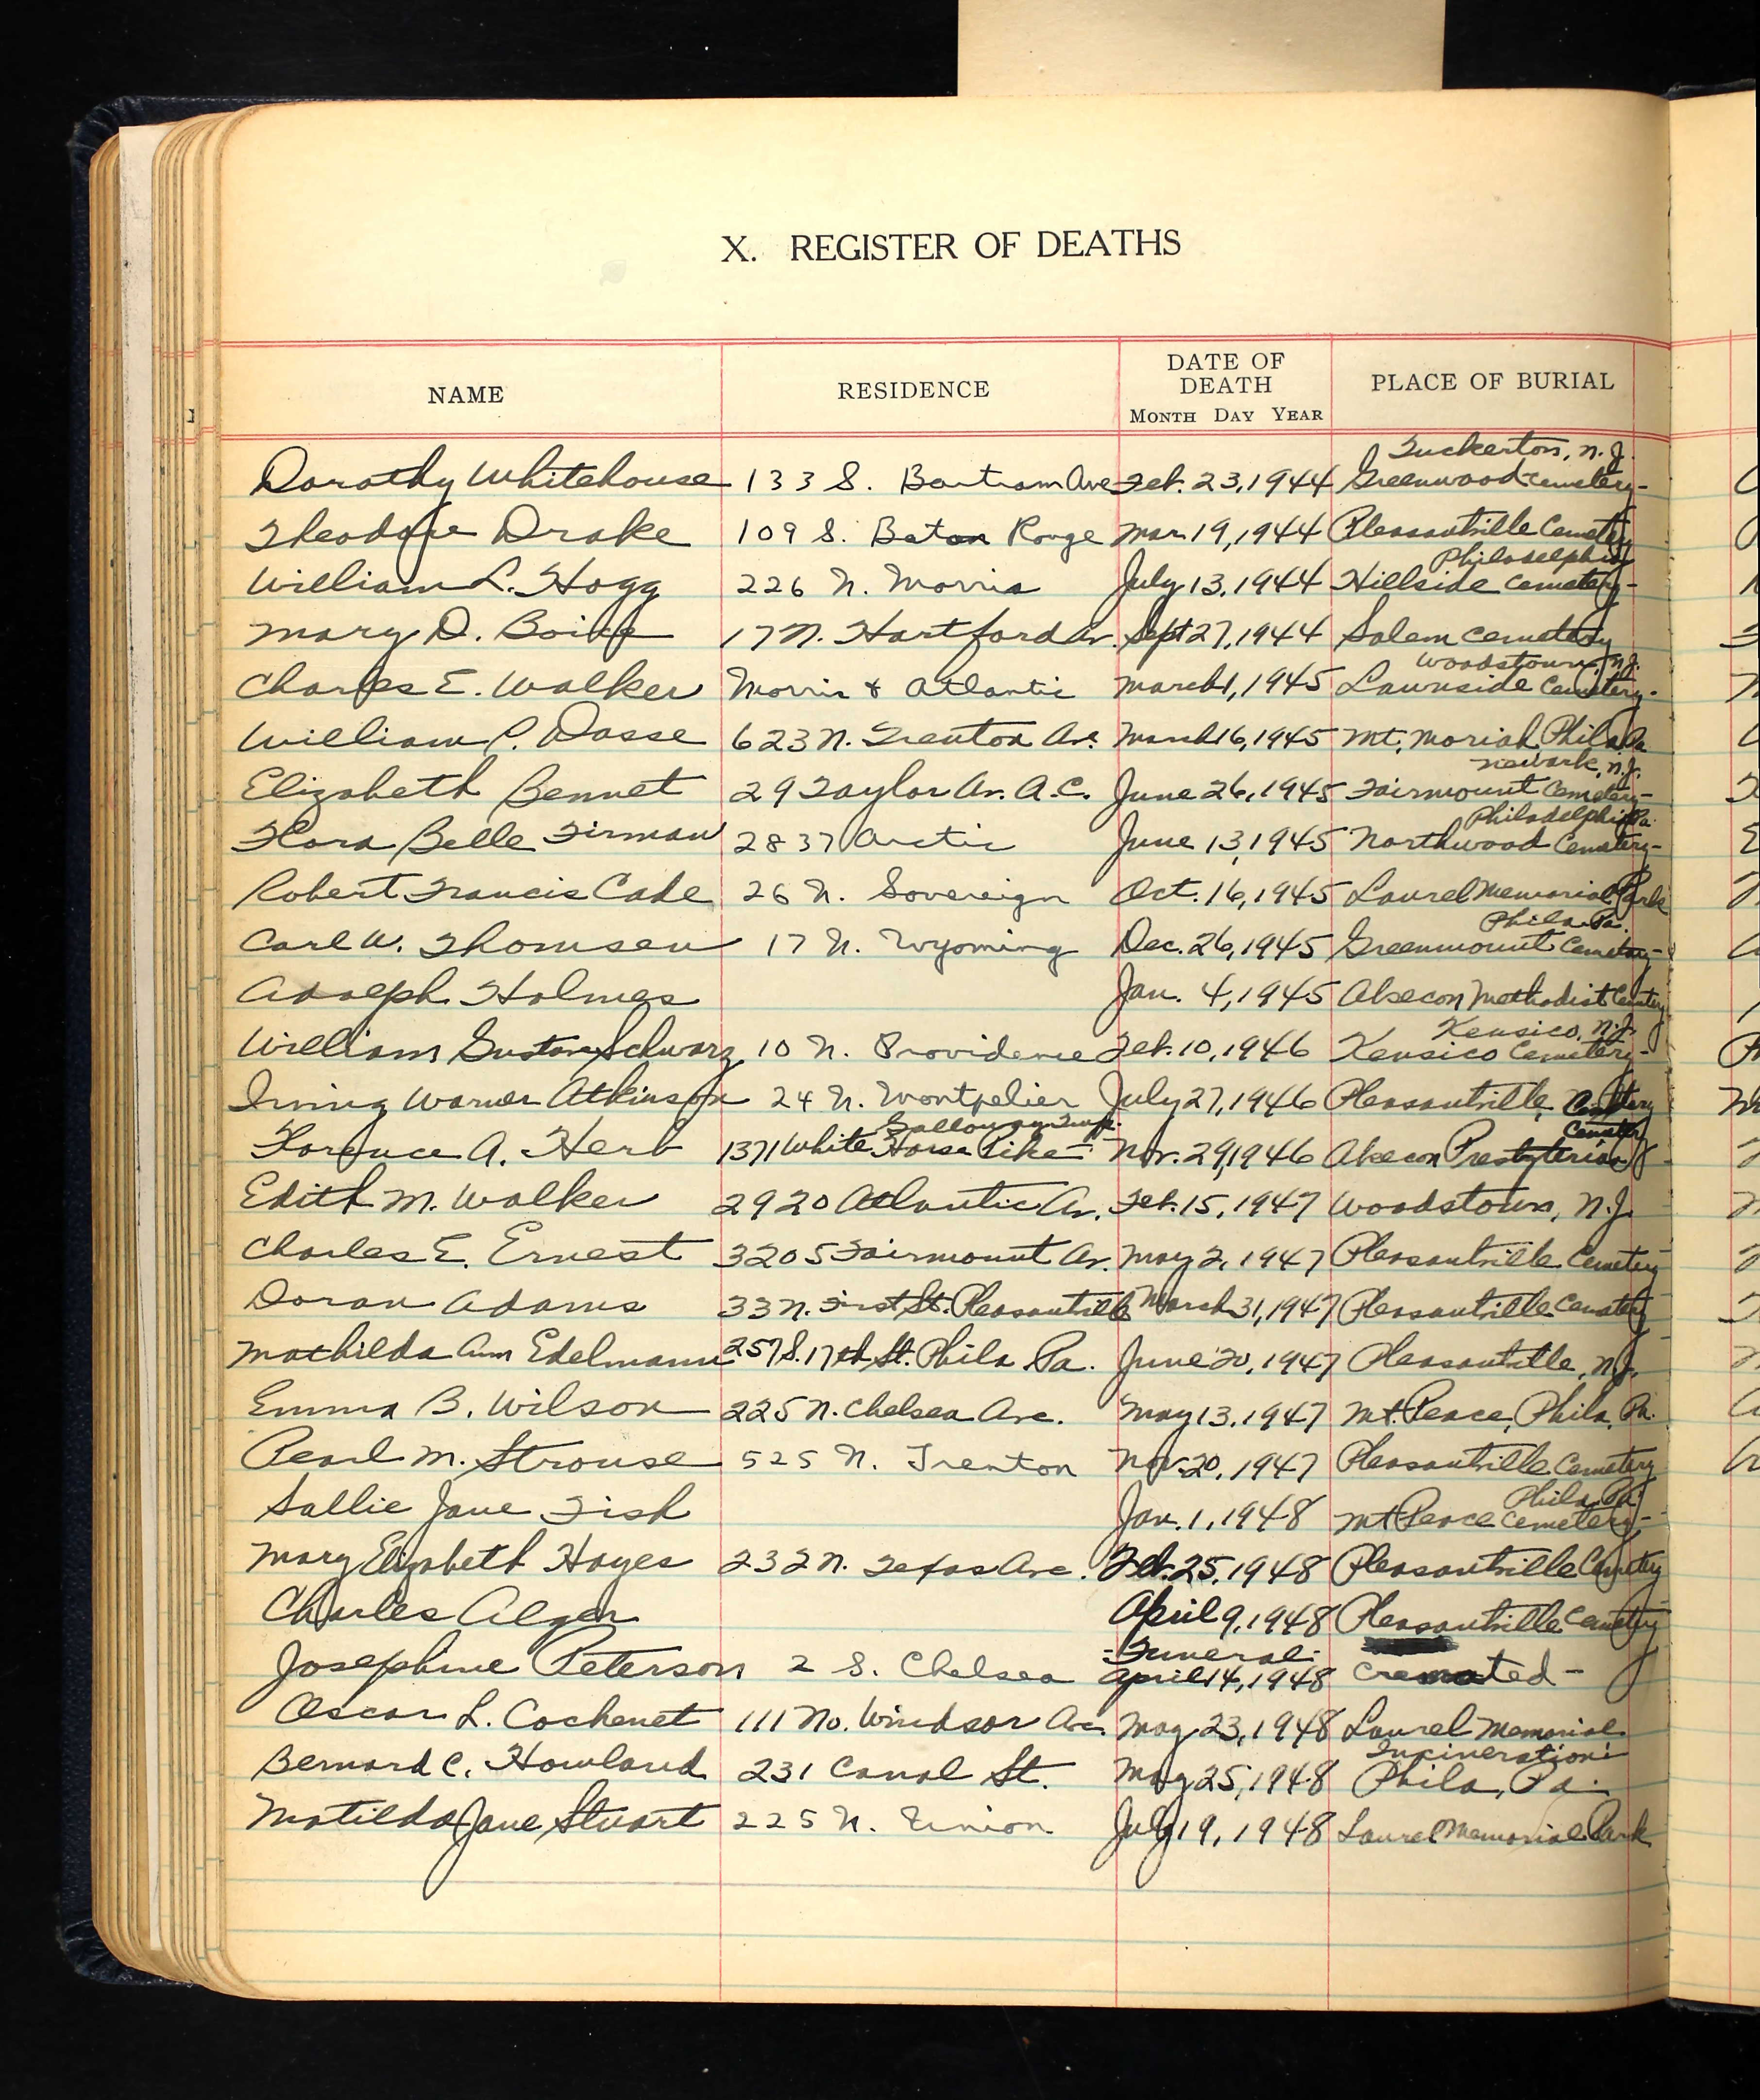 X. REGISTER OF DEATHS
NAME RESIDENCE DATE OF DEATH PLACE OF BURIAL
MONTH DAY YEAR
Tuckerton, N.J.
Dorothy Whitehouse 133 S. Bartram Ave Feb. 23, 1944 Greenwood Cemetery-
Theodore Drake 109 S. Baton Rouge Mar. 19, 1944 Pleasantville Cemetery
Philadelphia
William L. Hogg 226 N. Morris July 13, 1944 Hillside Cemetery-
Mary D. Boice 17 N. Hartford Av. Sept 27, 1944 Salem Cemetery
Woodstown, N.J.
Charles E. Walker Morris & Atlantic March 1, 1945 Lawnside Cemetery-
William P. Dasse 623 N. Trenton Av. March 16, 1945 Mt. Moriah Phila Pa
Newark, N.J.
Elizabeth Bennet 29 Taylor Av. A.C. June 26, 1945 Fairmount Cemetery-
Philadelphia Pa.
Flora Belle Firman 2837 Arctic June 13, 1945 Northwood Cemetery-
Robert Francis Cade 26 N. Sovereign Oct. 16, 1945 Laurel Memorial Park
Phila. Pa.
Carl W. Thomsen 17 N. Wyoming Dec. 26, 1945 Greenmount Cemetery-
Adolph Holmes Jan. 4, 1945 Absecon Methodist Cemetery
Kensico, N.J.
William Gustav Schwarz 10 N. Providence Feb. 10, 1946 Kensico Cemetery-
Irving Warner Atkinson 24 N. Montpelier July 27, 1946 Pleasantville Cemetery
Galloway Twp. Cemetery
Florence A. Herb 1371 White Horse Pike- Nov. 29, 1946 Absecon Presbyterian
Edith M. Walker 2920 Atlantic Av. Feb. 15, 1947 Woodstown, N.J.
Charles E. Ernest 3205 Fairmount Av. May 2, 1947 Pleasantville Cemetery
Doran Adams 33 N. First St. Pleasantville March 31, 1947 Pleasantville Cemetery
Mathilda Ann Edelmann 257 S. 17th St. Phila. Pa. June 20, 1947 Pleasantville, N.J.
Emma B. Wilson 225 N. Chelsea Ave. May 13, 1947 Mt. Peace, Phila. Pa.
Pearl M. Strouse 525 N. Trenton Nov. 20, 1947 Pleasantville Cemetery
Phila. Pa.
Sallie Jane Fish Jan. 1, 1948 Mt Peace Cemetery-
Mary Elizabeth Hayes 232 N. Texas Ave. Feb. 25, 1948 Pleasantville Cemetery
Charles Alger April 9, 1948 Pleasantville Cemetery
-Funeral-
Josephine Peterson 2 S. Chelsea April 14, 1948 Cremated-
Oscar L. Cochenet 111 No. Windsor Ave. May 23, 1948 Laurel Memorial
Incineration
Bernard C. Howland 231 Canal St. May 25, 1948 Phila, Pa.
Matilda Jane Stuart 225 N. Union July 19, 1948 Laurel Memorial Park